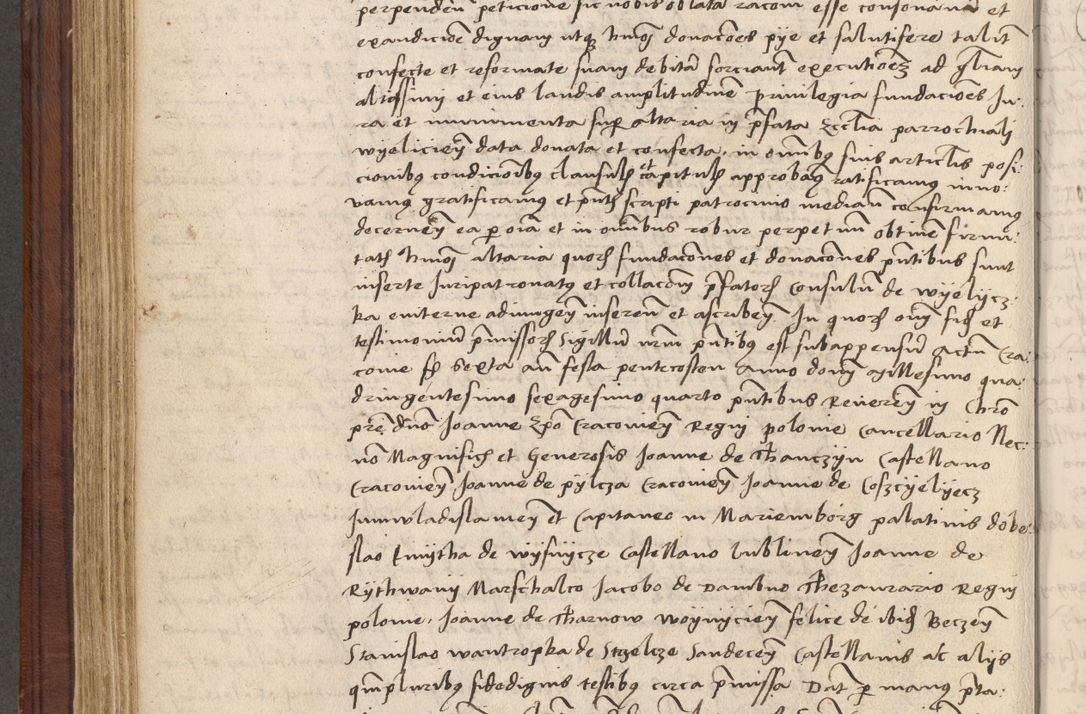 perpenden peticione sic nobis oblata raconi esse consonam et
exaudicioe dignam utqz hmoi donacoes pye et salutifere taliter
confecte et reformate suam debitam sorciant executioez ad gloriam
altissimi et eius laudis amplitudinem privilegia fundacioes Ju:
ra et munimenta super altaria in prefata Ecclia parrochiali
wyeliciem data donata et confecta, in omnibus suis articlis posi:
cionibus condicioibus clausulis et capitulis approbamus ratificamus inno:
vamus gratificamus et pntis scripti patrocinio mediam confirmamus
decernem ea per oia et in omnibus robur perpetuum obtinen firmi:
tatis hmoi altaria quorum fundacoes et donacones pntibus sunt
inserte Juripatronatus et collacom prefatorum Consulum de wyelycz:
ka eviterne adiungem inserem et ascribem. In quorum oim fidem et
testimonium premissorum Sigillum nrm pntibus est subappensum actum Cra:
covie fer Sexta an festa pentecosten Anno domi Millesimo qua
dringentesimo sexagesimo quarto pntibus Reverem in Chro
pre dno Joanne Epo Cracoviem Regni polonie Cancellario Nec:
non Magnificis et Generosis Joanne de Thanczyn Castellano
Cracoviem Joanne de pylcza Cracoviem Joanne de Coszcyelyecz
Junivladislaviem et Capitaneo in Mariemborg palatinis dobe:
slao kmytha de wysnycze Castellano lublinem Joanne de
Rythwany Marschalco Jacobo de Dambno Thezaurario Regni
polonie, Joanne de Tharnow woyniciem felice de ibidem Beczem
Stanislao wantropka de Strzelcze Sandecem Castellanis ac alys
quampluribus fidedignis testibus circa premissa Dat per manus pta: